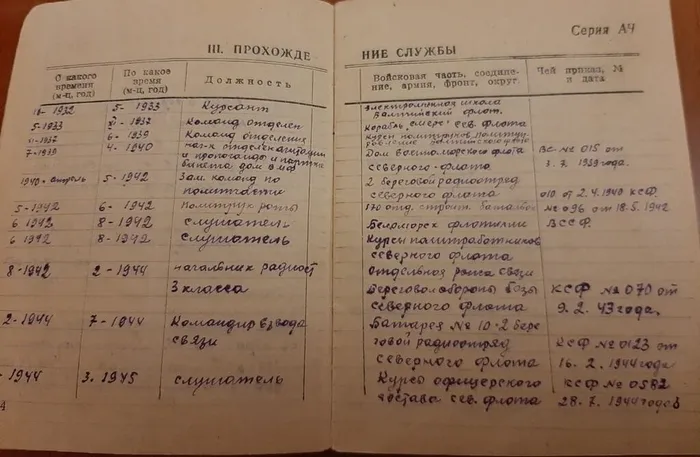 Серия АЧ
III. ПРОХОЖДЕ
НИЕ СЛУЖБЫ
С какого времени (м-ц, год)
По какое время (м-ц, год)
Должность
Войсковая часть, соединение, армия, фронт, округ.
Чей приказ, № и дата
1932 5-1933 Курсант
Балтийский флот.
5-1933 1937 Команд отделен
Корабль сев. флота
XI-1937 6-1939 Команд отделения
7-1939 4-1940 нач-к
Дом Военморского флота
№ 015 от
северного флота
3. 7. 1939 года.
1940-апрель 5-1942 Зам. команд по
2 береговой радиоотряд
политчасти
северного флота
010. от 2.4.1940 КСФ.
5-1942 6-1942 Политрук роты
170 отд. строит. батальон
№ 096 от 18.5.1942
6 1942 8-1942 слушатель
Беломорск флотилии
6 1942 8-1942 слушатель
Курсы политработников
северного флота
8-1942 2-1944 начальник радиост
Отдельная рота связи
3 класса
Береговой обороны базы
КСФ № 070 от
северного флота
9. 2. 43 года.
2-1944 7-1944 Командир взвода
Батарея № 10-2 бере
связи
говой радиоотряд
КСФ № 0123 от
северного флота
16. 2. 1944 года
-1944 3. 1945 слушатель
Курсы офицерского
КСФ № 0582
состава сев. флота
28. 7. 1944 года